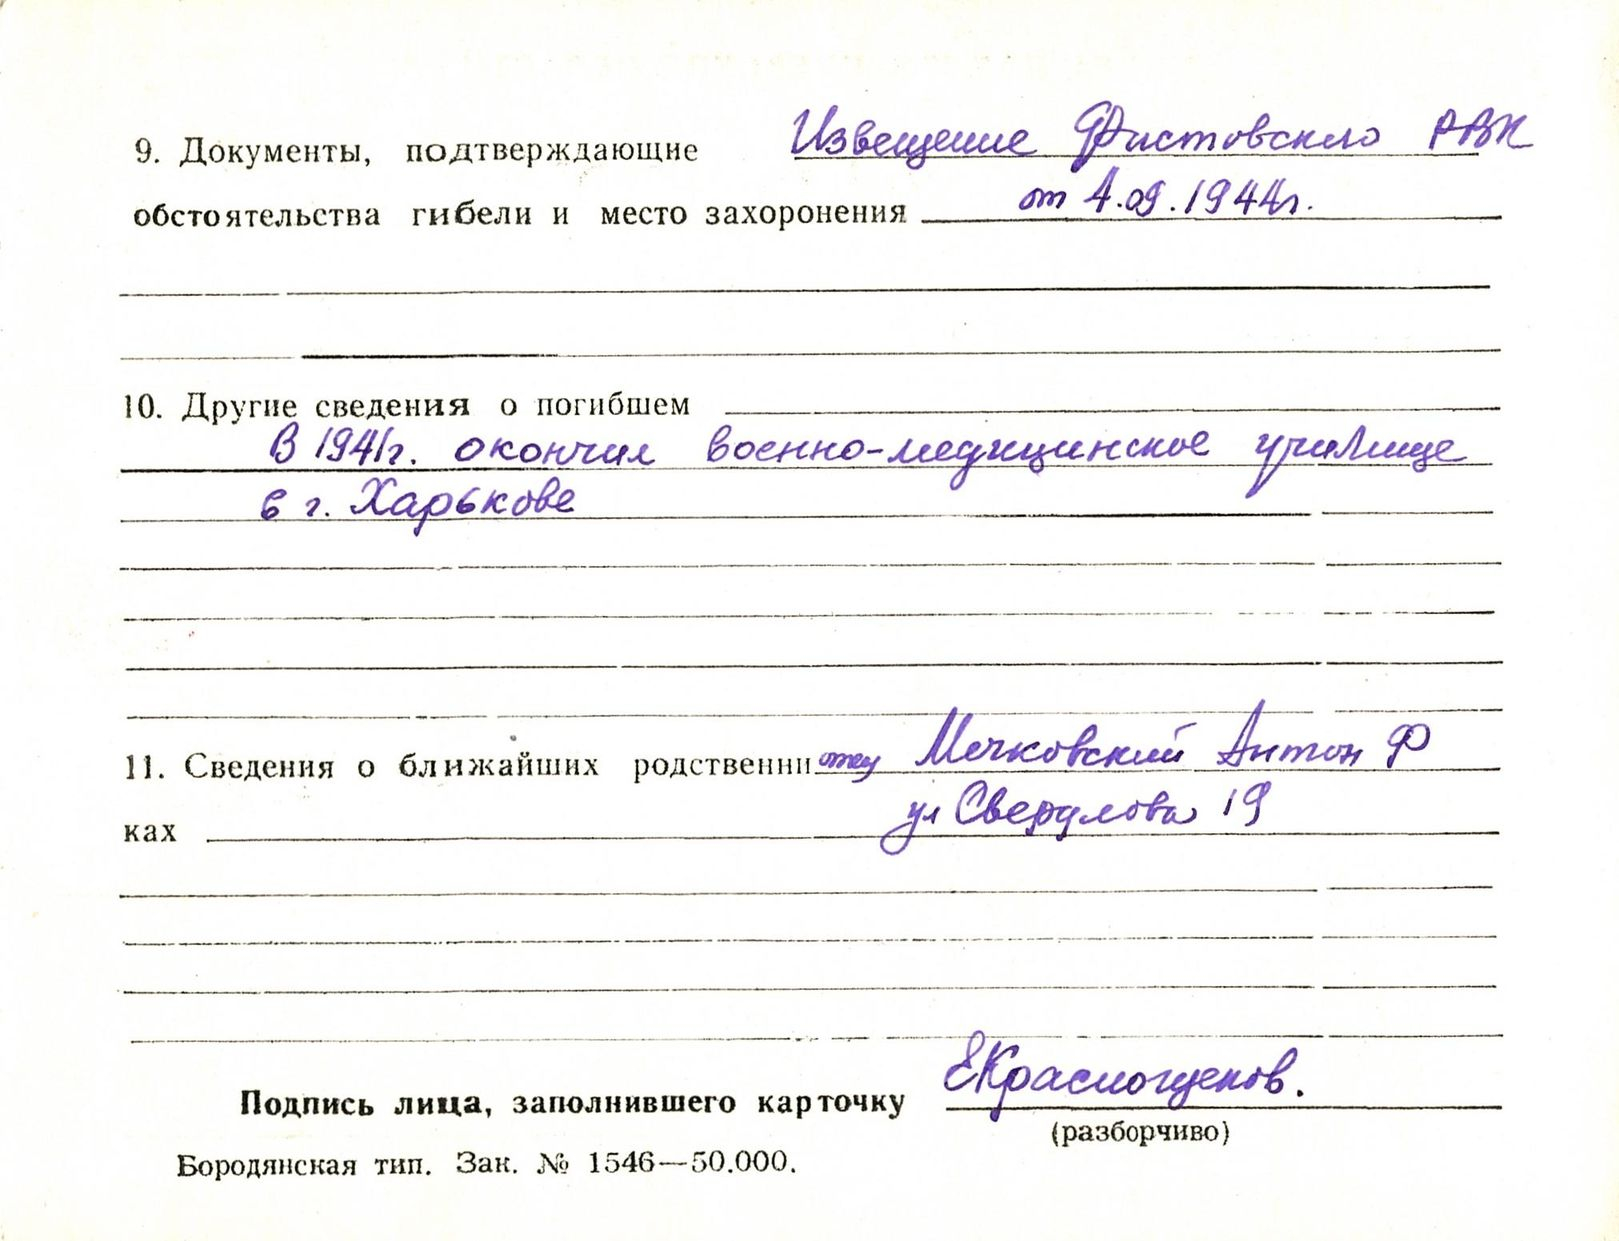 9. Документы, подтверждающие Извещение Фастовского РВК
обстоятельства гибели и место захоронения от 4.09.1944г.
10. Другие сведения о погибшем
В 1941г. окончил военно-медицинское училище
в г. Харькове
11. Сведения о ближайших родственни отец Мечковский Антон Ф
ках ул Свердлова 19
Подпись лица, заполнившего карточку ЕКрасногценов.
(разборчиво)
Бородянская тип. Зак. № 1546—50.000.